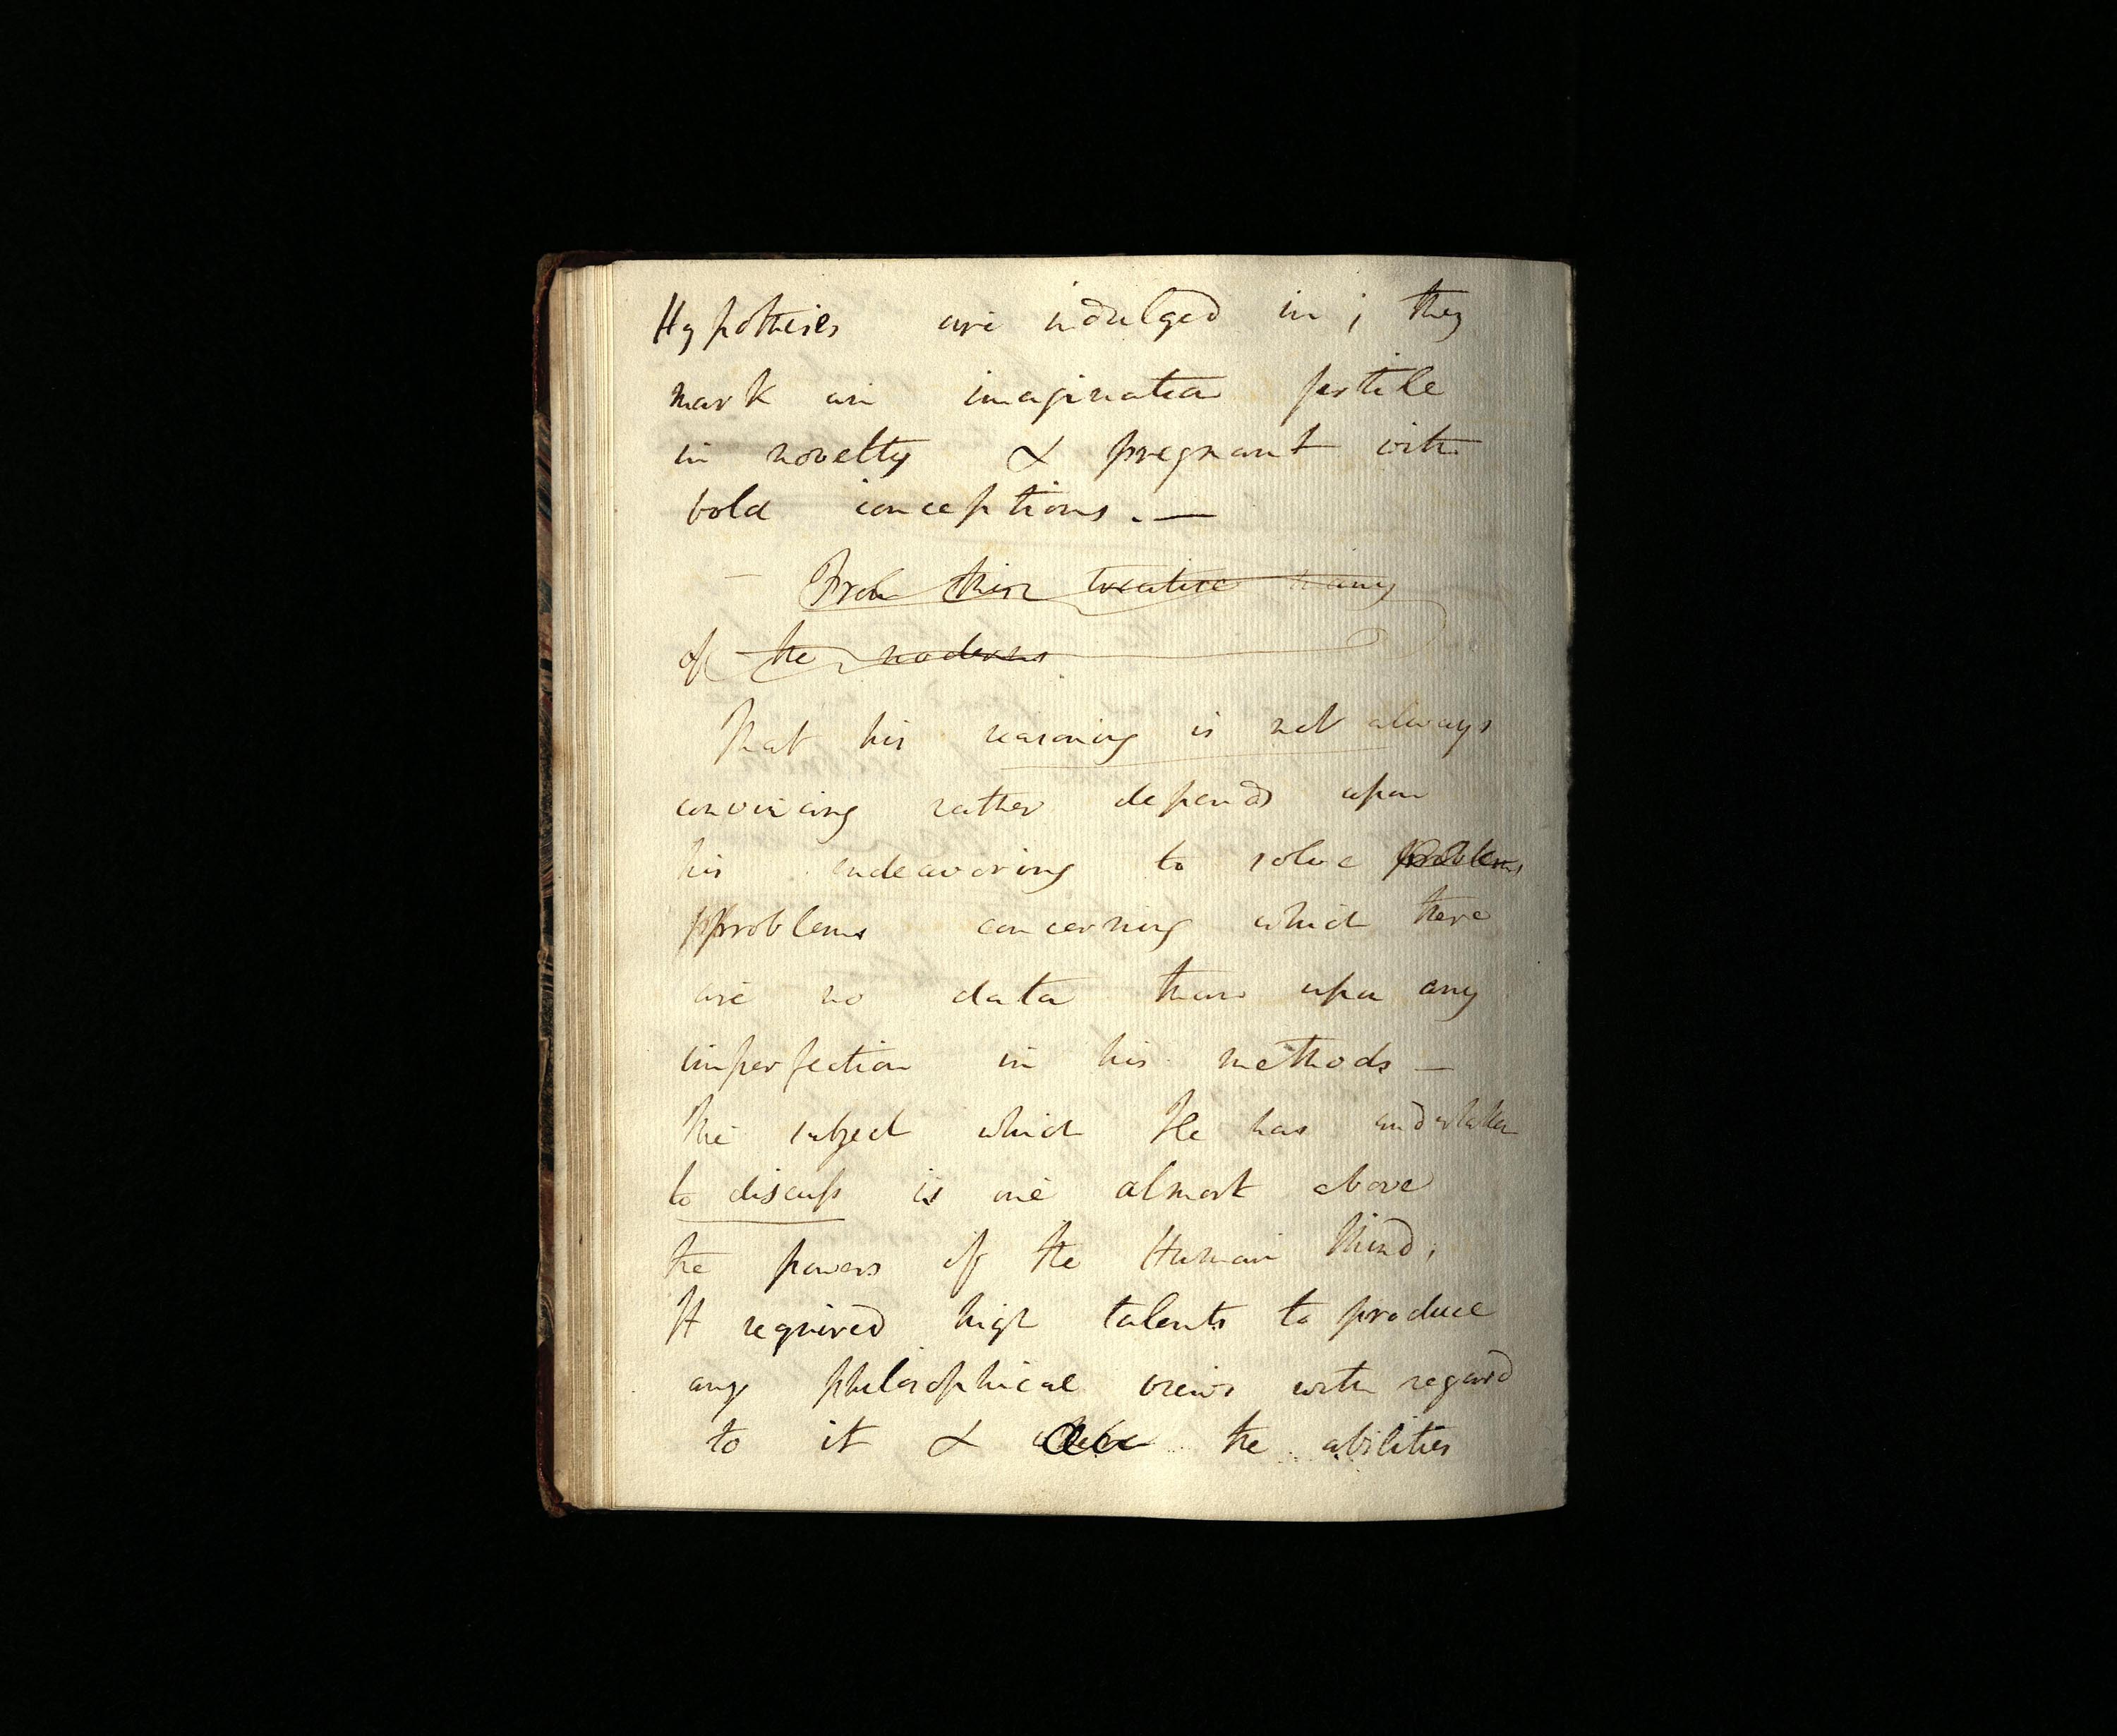 Hypothesis are indulged in; they
mark an imagination fertile
in novelty & pregnant with
bold conceptions. —
— From this treatise many
of the moderns
That his reasoning is not always
convincing rather depends upon
his endeavoring to solve problems
pproblems concerning which there
are no data than upon any
imperfection in his methods —
The subject which He has undertaken
to discuss is one almost above
the powers of the Human Mind;
It required high talents to produce
any philosophical views with regard
to it & the abilities